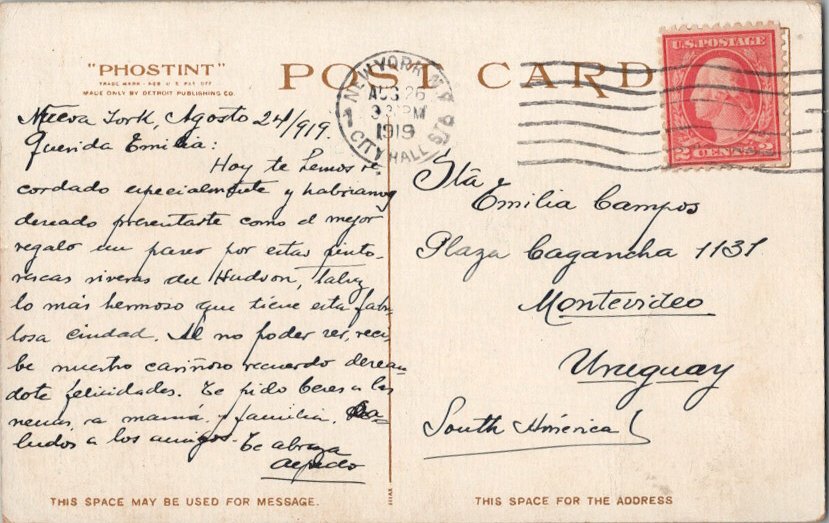 "PHOSTINT"
TRADE MARK - REG U.S. PAT. OFF
MADE ONLY BY DETROIT PUBLISHING CO.
POST CARD
U.S. POSTAGE
2 CENTS 2
NEW YORK, N.Y.
AUG 26
PM
1919
CITY HALL STA
Nueva York, Agosto 24/919.
Querida Emilia:
Hoy te hemos re
cordado especialmente y habriamos
deseado presentarte como el mejor
regalo un paseo por estas pinto-
rescas riveras del Hudson, talvez
lo más hermoso que tiene esta fabu-
losa ciudad. Al no poder ser, reci
be nuestro cariñoso recuerdo desean
dote felicidades. Te pido beses a las
nenas, a mamá y familia. Sa-
ludos a los amigos. Te abraza
Alfredo
Sta
Emilia Campos
Plaza Cagancha 1131
Montevideo
Uruguay
South América
THIS SPACE MAY BE USED FOR MESSAGE.
THIS SPACE FOR THE ADDRESS